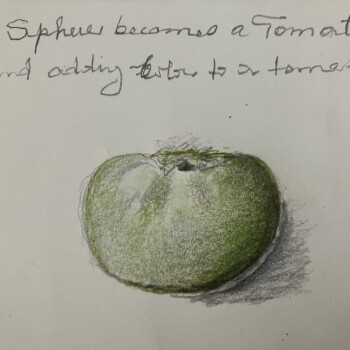 Sphere becomes a Tomat
nd adding color to a tomat